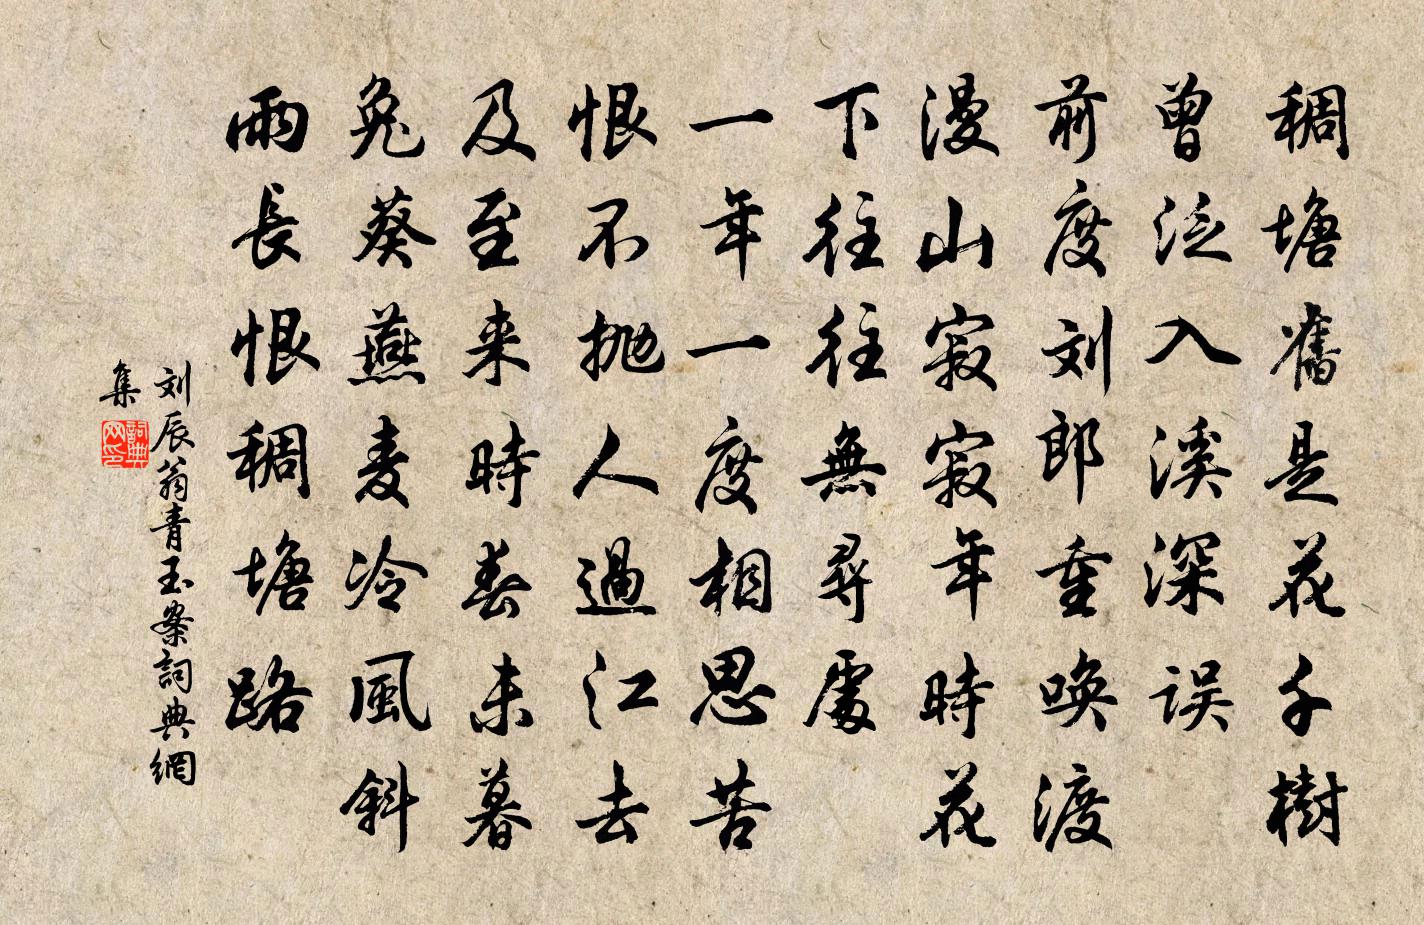 稠塘舊是花千樹
曾泛入溪深误
前度刘郎重唤渡
漫山寂寂年時花
下往往無尋處
一年一度相思苦
恨不抛人過江去
及至来時春未暮
兔葵燕麦冷風斜
雨長恨稠塘路
刘辰翁青玉案詞典網
集
詞典
网印